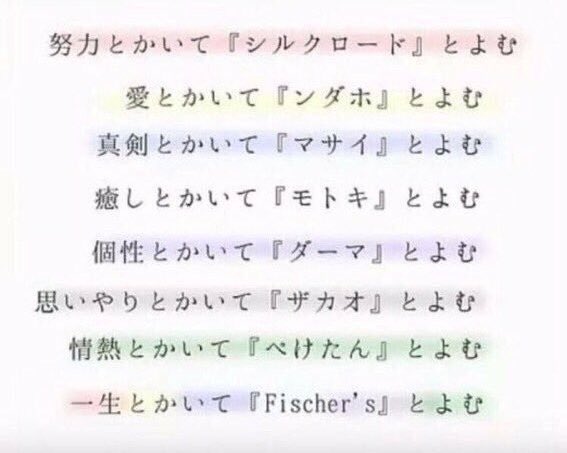 努力とかいて『シルクロード』とよむ
愛とかいて『ンダホ』とよむ
真剣とかいて『マサイ』とよむ
癒しとかいて『モトキ』とよむ
個性とかいて『ダーマ』とよむ
思いやりとかいて『ザカオ』とよむ
情熱とかいて『ぺけたん』とよむ
一生とかいて『Fischer's』とよむ